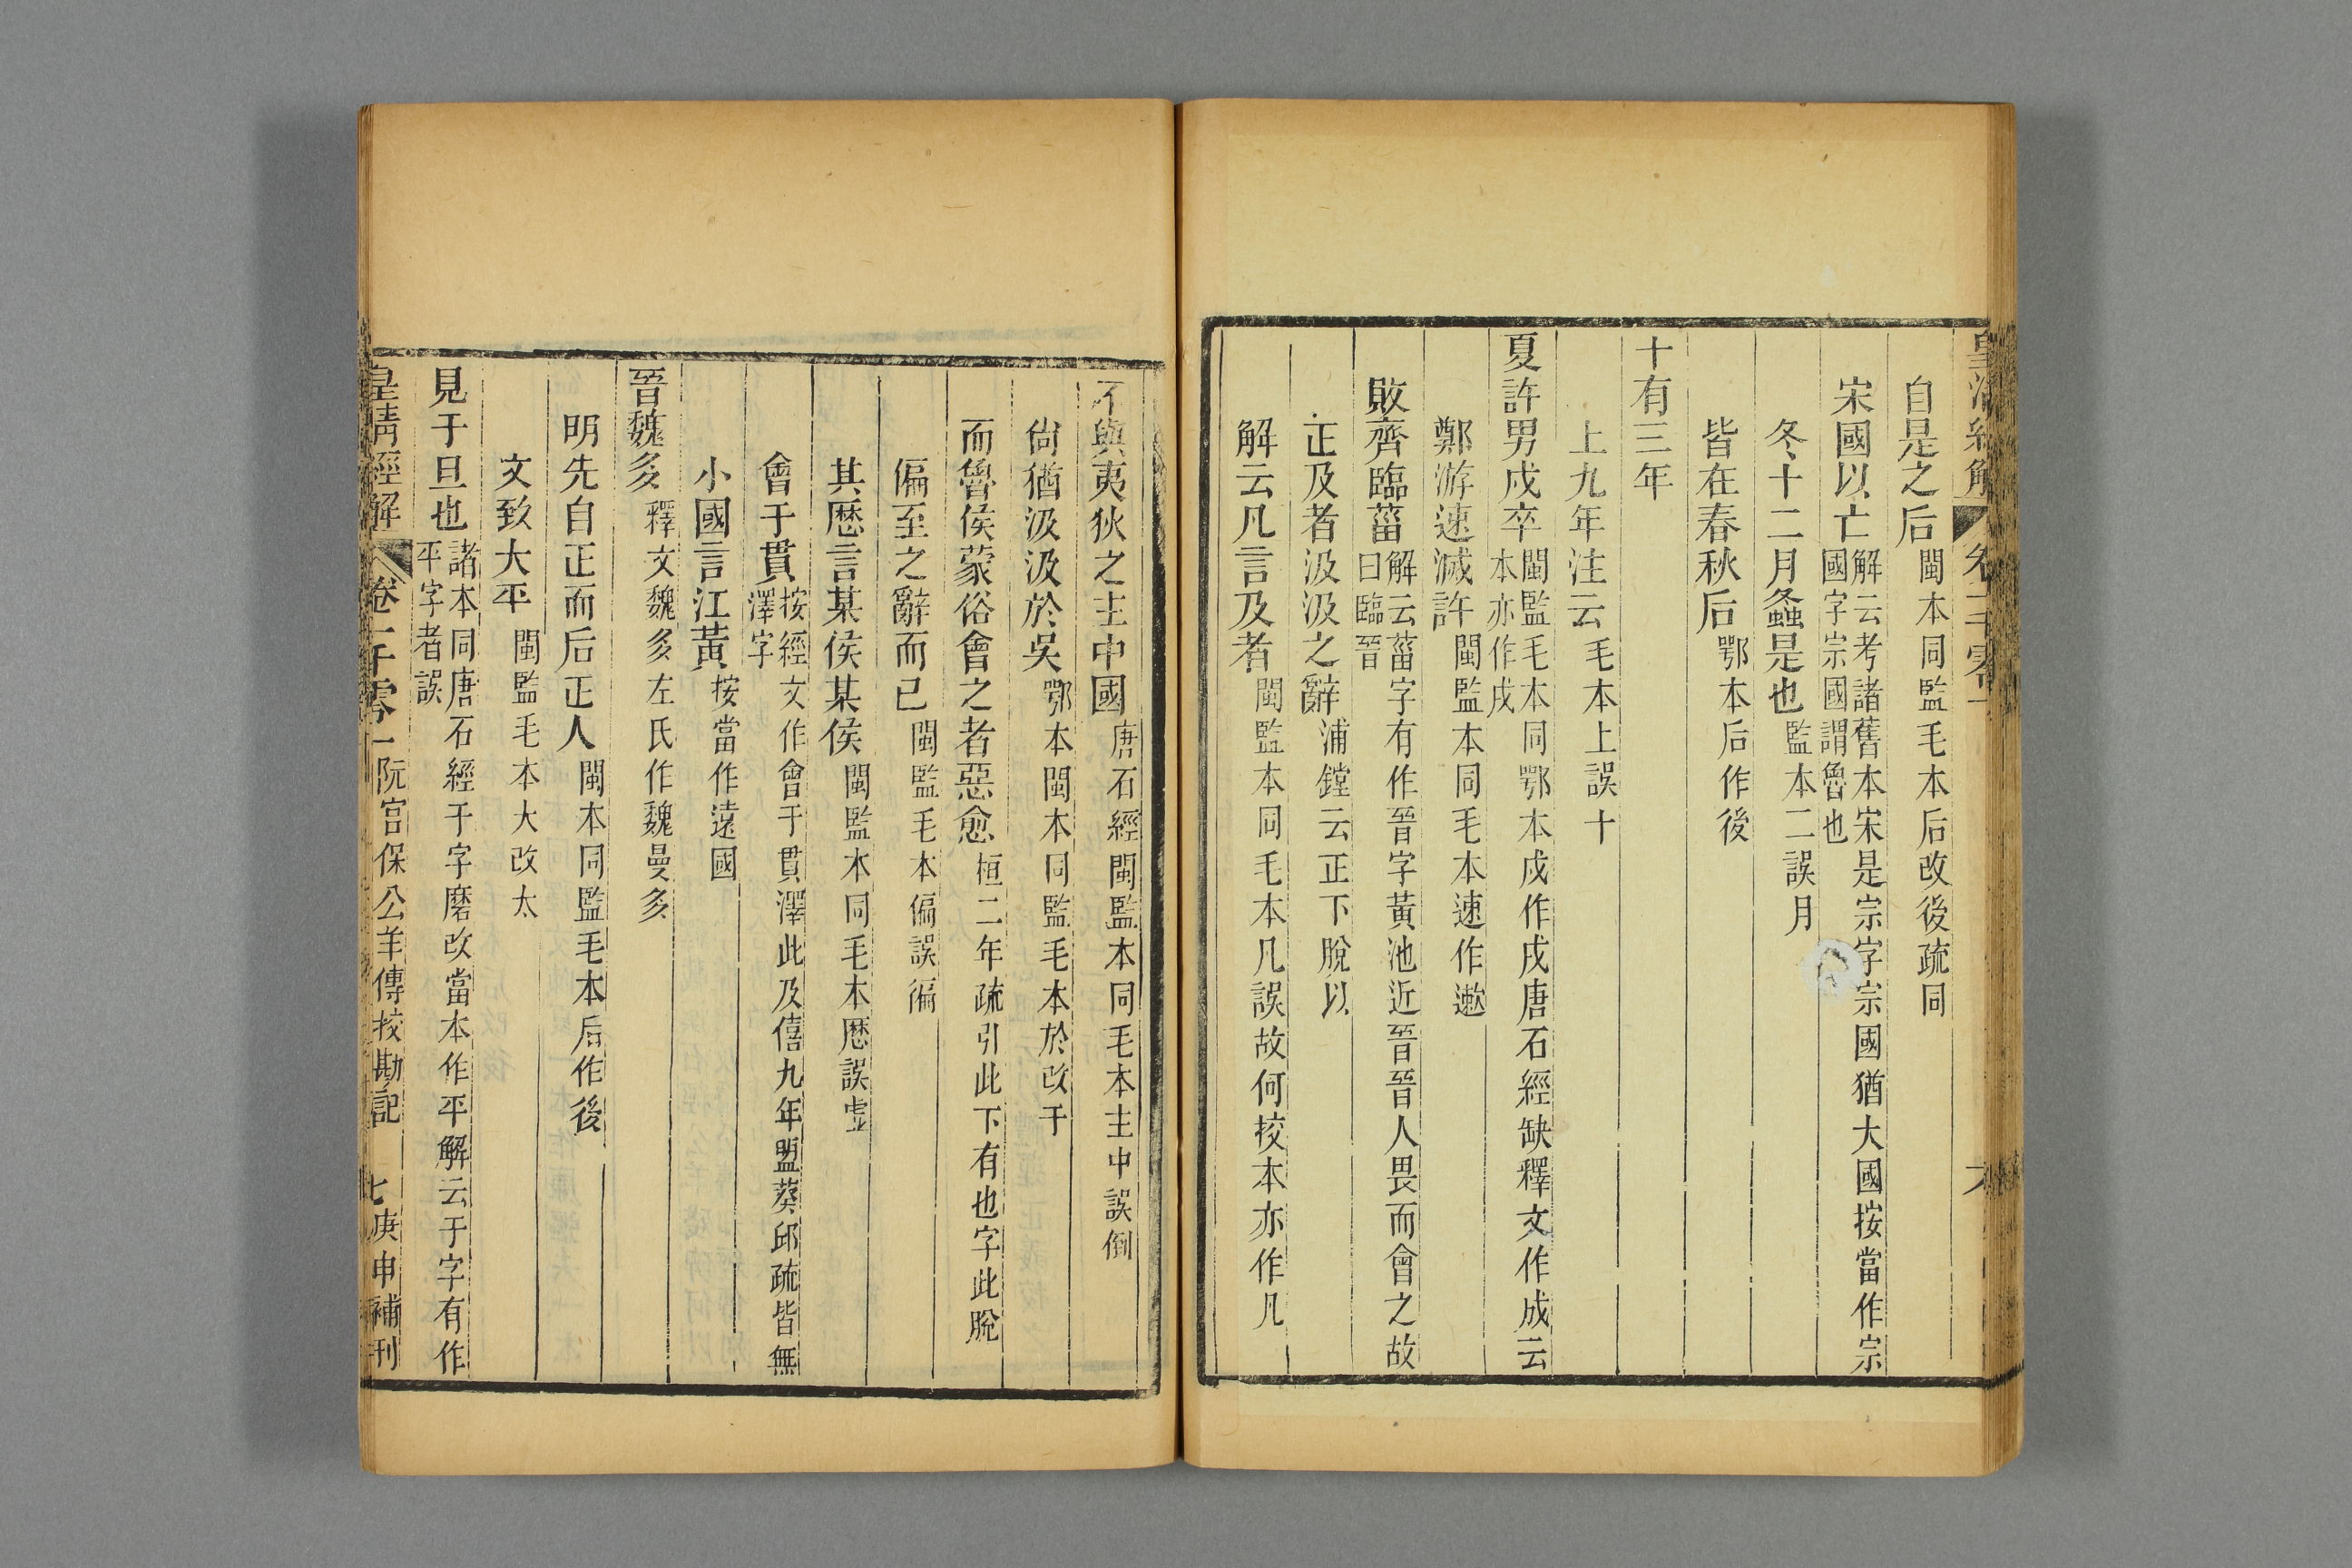 自是之后閩本同監毛本后改後疏同
宋國以亡解云考諸舊本宋是宗字宗國猶大國按當作宗
國字宗國謂魯也
冬十二月螽是也監本二誤月
皆在春秋后鄂本后作後
十有三年
上九年注云毛本上誤十
夏許男戍卒閩監毛本同鄂本戍作戌唐石經缺釋文作成云
本亦作戌
鄭游速滅許閩監本同毛本速作遫
敗齊臨菑解云菑字有作晉字黃池近晉晉人畏而會之故
曰臨晉
正及者汲汲之辭浦鏜云正下脫以
解云凡言及者閩監本同毛本凡誤故何挍本亦作凡
不與夷狄之主中國唐石經閩監本同毛本主中誤倒
尙猶汲汲於吳鄂本閩本同監毛本於改于
而魯侯蒙俗會之者惡愈桓二年疏引此下有也字此脫
偏至之辭而已閩監毛本偏誤徧
其厯言某侯某侯閩監本同毛本厯誤虛
會于貫按經文作會于貫澤此及僖九年盟葵邱疏皆無
澤字
小國言江黃按當作遠國
晉魏多釋文魏多左氏作魏曼多
明先自正而后正人閩本同監毛本后作後
文致大平閩監毛本大改太
見于旦也諸本同唐石經于字磨改當本作平解云于字有作
平字者誤
皇清經解 卷一千零一 阮宮保公羊傳挍勘記 七 庚申補刊